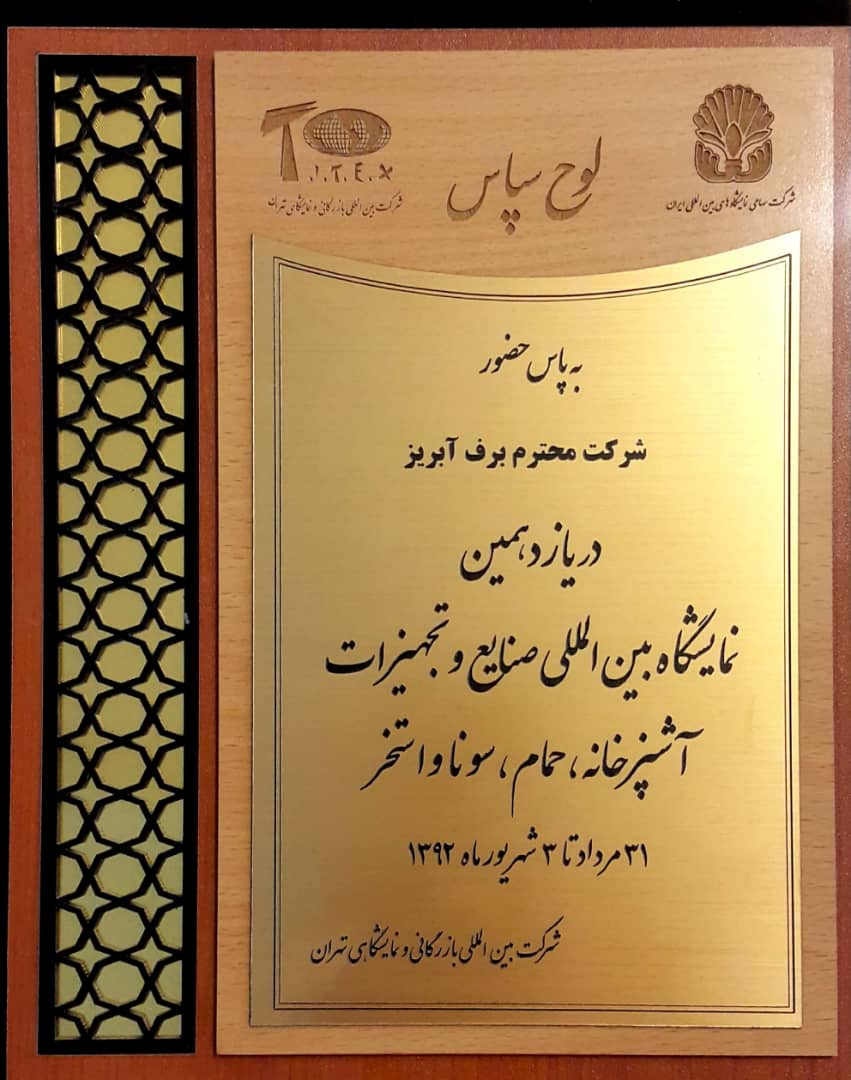 شرکت سهامی نمایشگاههای بین المللی ایران
لوح سپاس
T.I.T.E.X
شرکت بین المللی بازرگانی و نمایشگاهی تهران
به پاس حضور
شرکت محترم برف آبریز
در یازدهمین
نمایشگاه بین المللی صنایع و تجهیزات
آشپزخانه، حمام، سونا و استخر
۳۱ مرداد تا ۳ شهریور ماه ۱۳۹۲
شرکت بین المللی بازرگانی و نمایشگاهی تهران